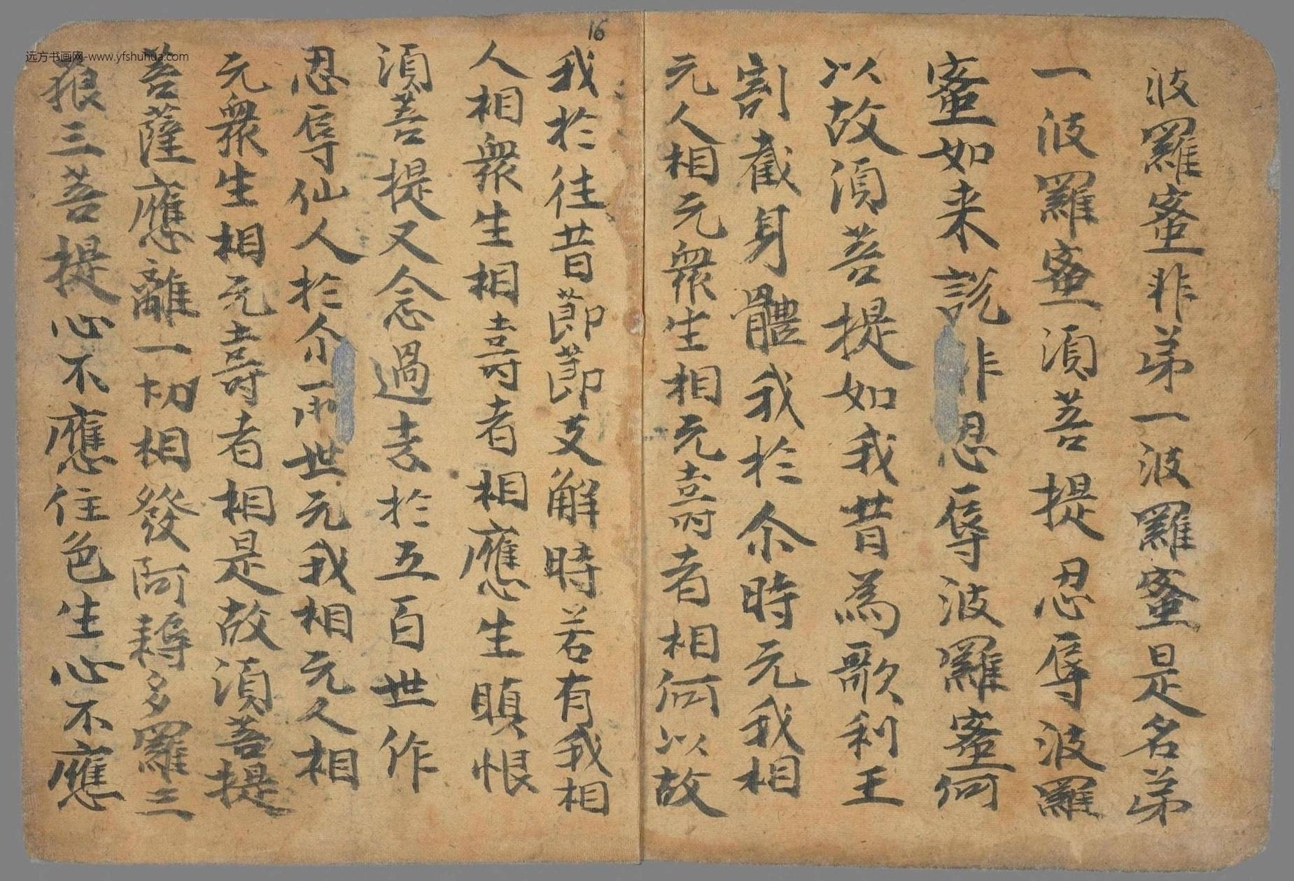 波羅蜜非弟一波羅蜜是名弟
一波羅蜜須菩提忍辱波羅
蜜如来說非忍辱波羅蜜何
以故須菩提如我昔為歌利王
割截身體我於尒時无我相
无人相无衆生相无壽者相何以故
16
我於往昔莭莭支解時若有我相
人相衆生相壽者相應生瞋恨
須菩提又念過去於五百世作
忍辱仙人於尒所世无我相无人相
无衆生相无壽者相是故須菩提
菩薩應離一切相發阿耨多羅三
藐三菩提心不應住色生心不應
远方书画网-www.yfshuhua.com